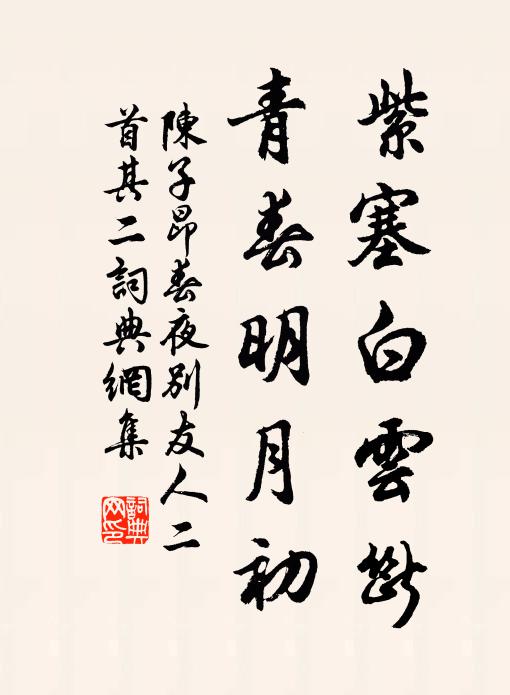 紫塞白雲斷
青春明月初
陳子昂春夜別友人二
首其二詞典網集
詞典
网印